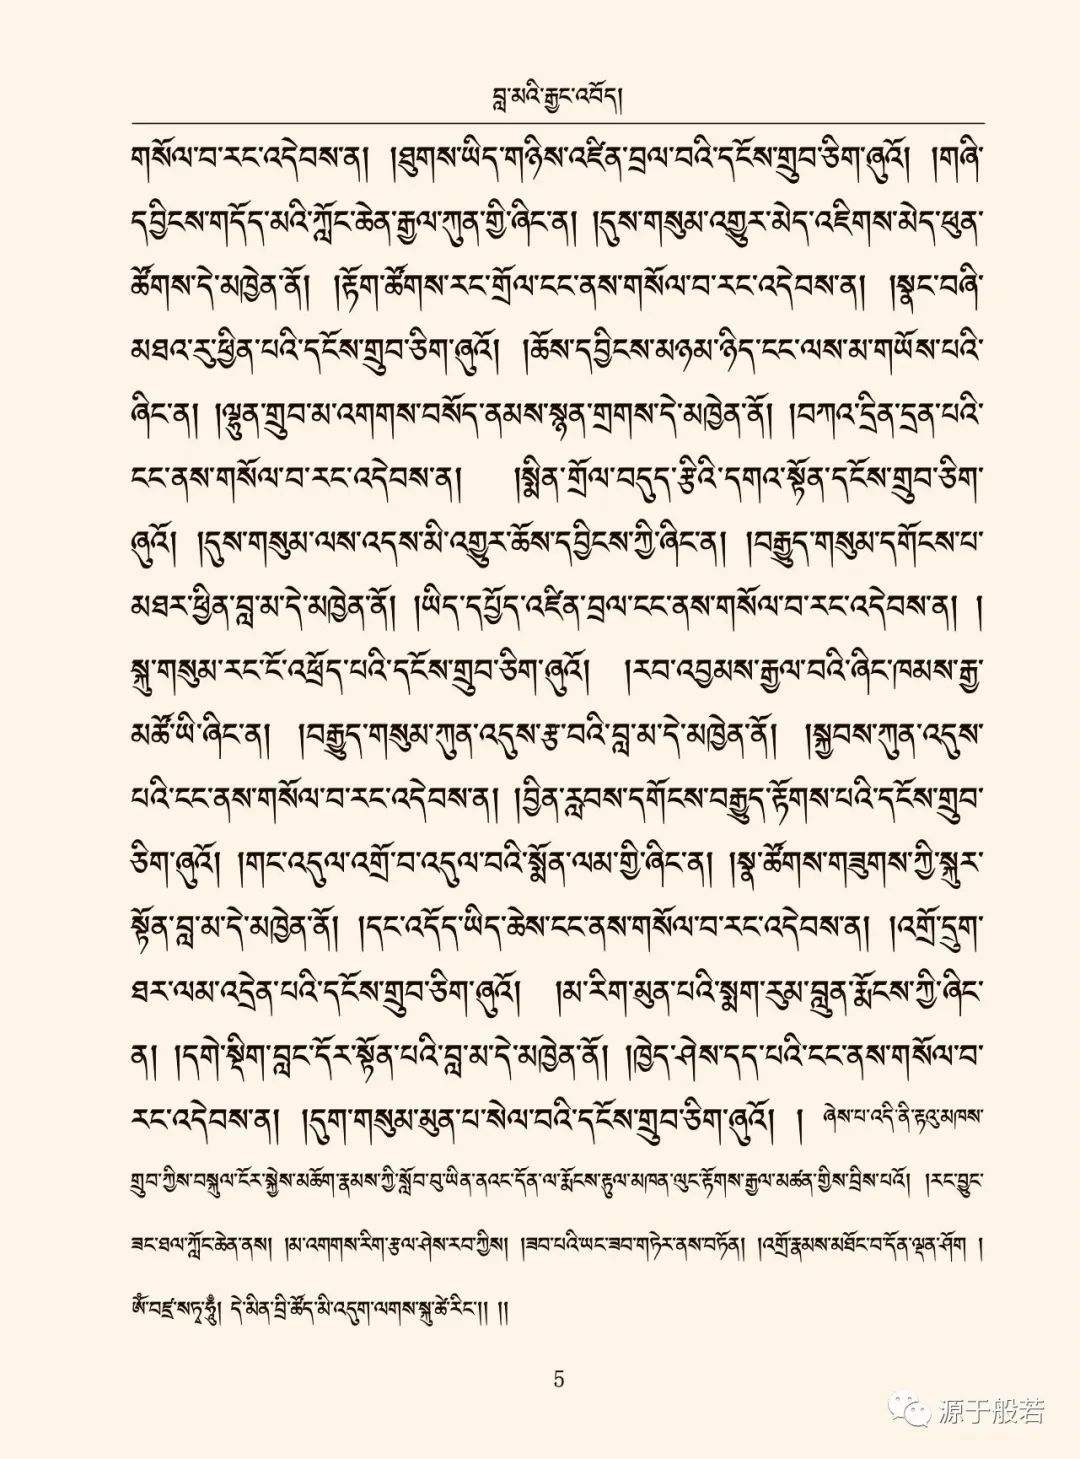 བླ་མའི་རྒྱང་འབོད།
གསོལ་བ་རང་འདེབས་ན། །ཐུགས་ཡིད་གཉིས་འཛིན་བྲལ་བའི་དངོས་གྲུབ་ཅིག་ཞུའོ། །གཞི་
དབྱིངས་གདོད་མའི་ཀློང་ཆེན་རྒྱལ་ཀུན་གྱི་ཞིང་ན། །དུས་གསུམ་འགྱུར་མེད་འཇིགས་མེད་ཕུན་
ཚོགས་དེ་མཁྱེན་ནོ། །རྟོག་ཚོགས་རང་གྲོལ་ངང་ནས་གསོལ་བ་རང་འདེབས་ན། །སྣང་བཞི་
མཐའ་རུ་ཕྱིན་པའི་དངོས་གྲུབ་ཅིག་ཞུའོ། །ཆོས་དབྱིངས་མཉམ་ཉིད་ངང་ལས་མ་གཡོས་པའི་
ཞིང་ན། །ལྷུན་གྲུབ་མ་འགགས་བསོད་ནམས་སྙན་གྲགས་དེ་མཁྱེན་ནོ། །བཀའ་དྲིན་དྲན་པའི་
ངང་ནས་གསོལ་བ་རང་འདེབས་ན། །སྨིན་གྲོལ་བདུད་རྩིའི་དགའ་སྟོན་དངོས་གྲུབ་ཅིག་
ཞུའོ། །དུས་གསུམ་ལས་འདས་མི་འགྱུར་ཆོས་དབྱིངས་ཀྱི་ཞིང་ན། །བརྒྱུད་གསུམ་དགོངས་པ་
མཐར་ཕྱིན་བླ་མ་དེ་མཁྱེན་ནོ། །ཡིད་དཔྱོད་འཛིན་བྲལ་ངང་ནས་གསོལ་བ་རང་འདེབས་ན། །
སྐུ་གསུམ་རང་ངོ་འཕྲོད་པའི་དངོས་གྲུབ་ཅིག་ཞུའོ། །རབ་འབྱམས་རྒྱལ་བའི་ཞིང་ཁམས་རྒྱ་
མཚོ་ཡི་ཞིང་ན། །བརྒྱུད་གསུམ་ཀུན་འདུས་རྩ་བའི་བླ་མ་དེ་མཁྱེན་ནོ། །སྐྱབས་ཀུན་འདུས་
པའི་ངང་ནས་གསོལ་བ་རང་འདེབས་ན། །བྱིན་རླབས་དགོངས་བརྒྱུད་རྟོགས་པའི་དངོས་གྲུབ་
ཅིག་ཞུའོ། །གང་འདུལ་འགྲོ་བ་འདུལ་བའི་སྨོན་ལམ་གྱི་ཞིང་ན། །སྣ་ཚོགས་གཟུགས་ཀྱི་སྐུར་
སྟོན་བླ་མ་དེ་མཁྱེན་ནོ། །དང་འདོད་ཡིད་ཆེས་ངང་ནས་གསོལ་བ་རང་འདེབས་ན། །འགྲོ་དྲུག་
ཐར་ལམ་འདྲེན་པའི་དངོས་གྲུབ་ཅིག་ཞུའོ། །མ་རིག་མུན་པའི་སྨག་རུམ་བླུན་རྨོངས་ཀྱི་ཞིང་
ན། །དགེ་སྡིག་བླང་དོར་སྟོན་པའི་བླ་མ་དེ་མཁྱེན་ནོ། །ཁྱེད་ཤེས་དད་པའི་ངང་ནས་གསོལ་བ་
རང་འདེབས་ན། །དུག་གསུམ་མུན་པ་སེལ་བའི་དངོས་གྲུབ་ཅིག་ཞུའོ། ། ཞེས་པ་འདི་ནི་རྟའུ་མཁས་
གྲུབ་ཀྱིས་བསྐུལ་ངོར་སྐྱེས་མཆོག་རྣམས་ཀྱི་སློབ་བུ་ཡིན་ནའང་དོན་ལ་རྨོངས་རྟུལ་མཁན་ལུང་རྟོགས་རྒྱལ་མཚན་གྱིས་བྲིས་པའོ། །རང་བྱུང་
ཟང་ཐལ་ཀློང་ཆེན་ནས། །མ་འགགས་རིག་རྩལ་ཤེས་རབ་ཀྱིས། །ཟབ་པའི་ཡང་ཟབ་གཏེར་ནས་བཏོན། །འགྲོ་རྣམས་མཐོང་བ་དོན་ལྡན་ཤོག །
ཨོཾ་བཛྲ་སཏྭ་ཧཱུྃ། དེ་མིན་བྲི་ཚོད་མི་འདུག་ལགས་སྐུ་ཚེ་རིང་།། །།
5
源于般若